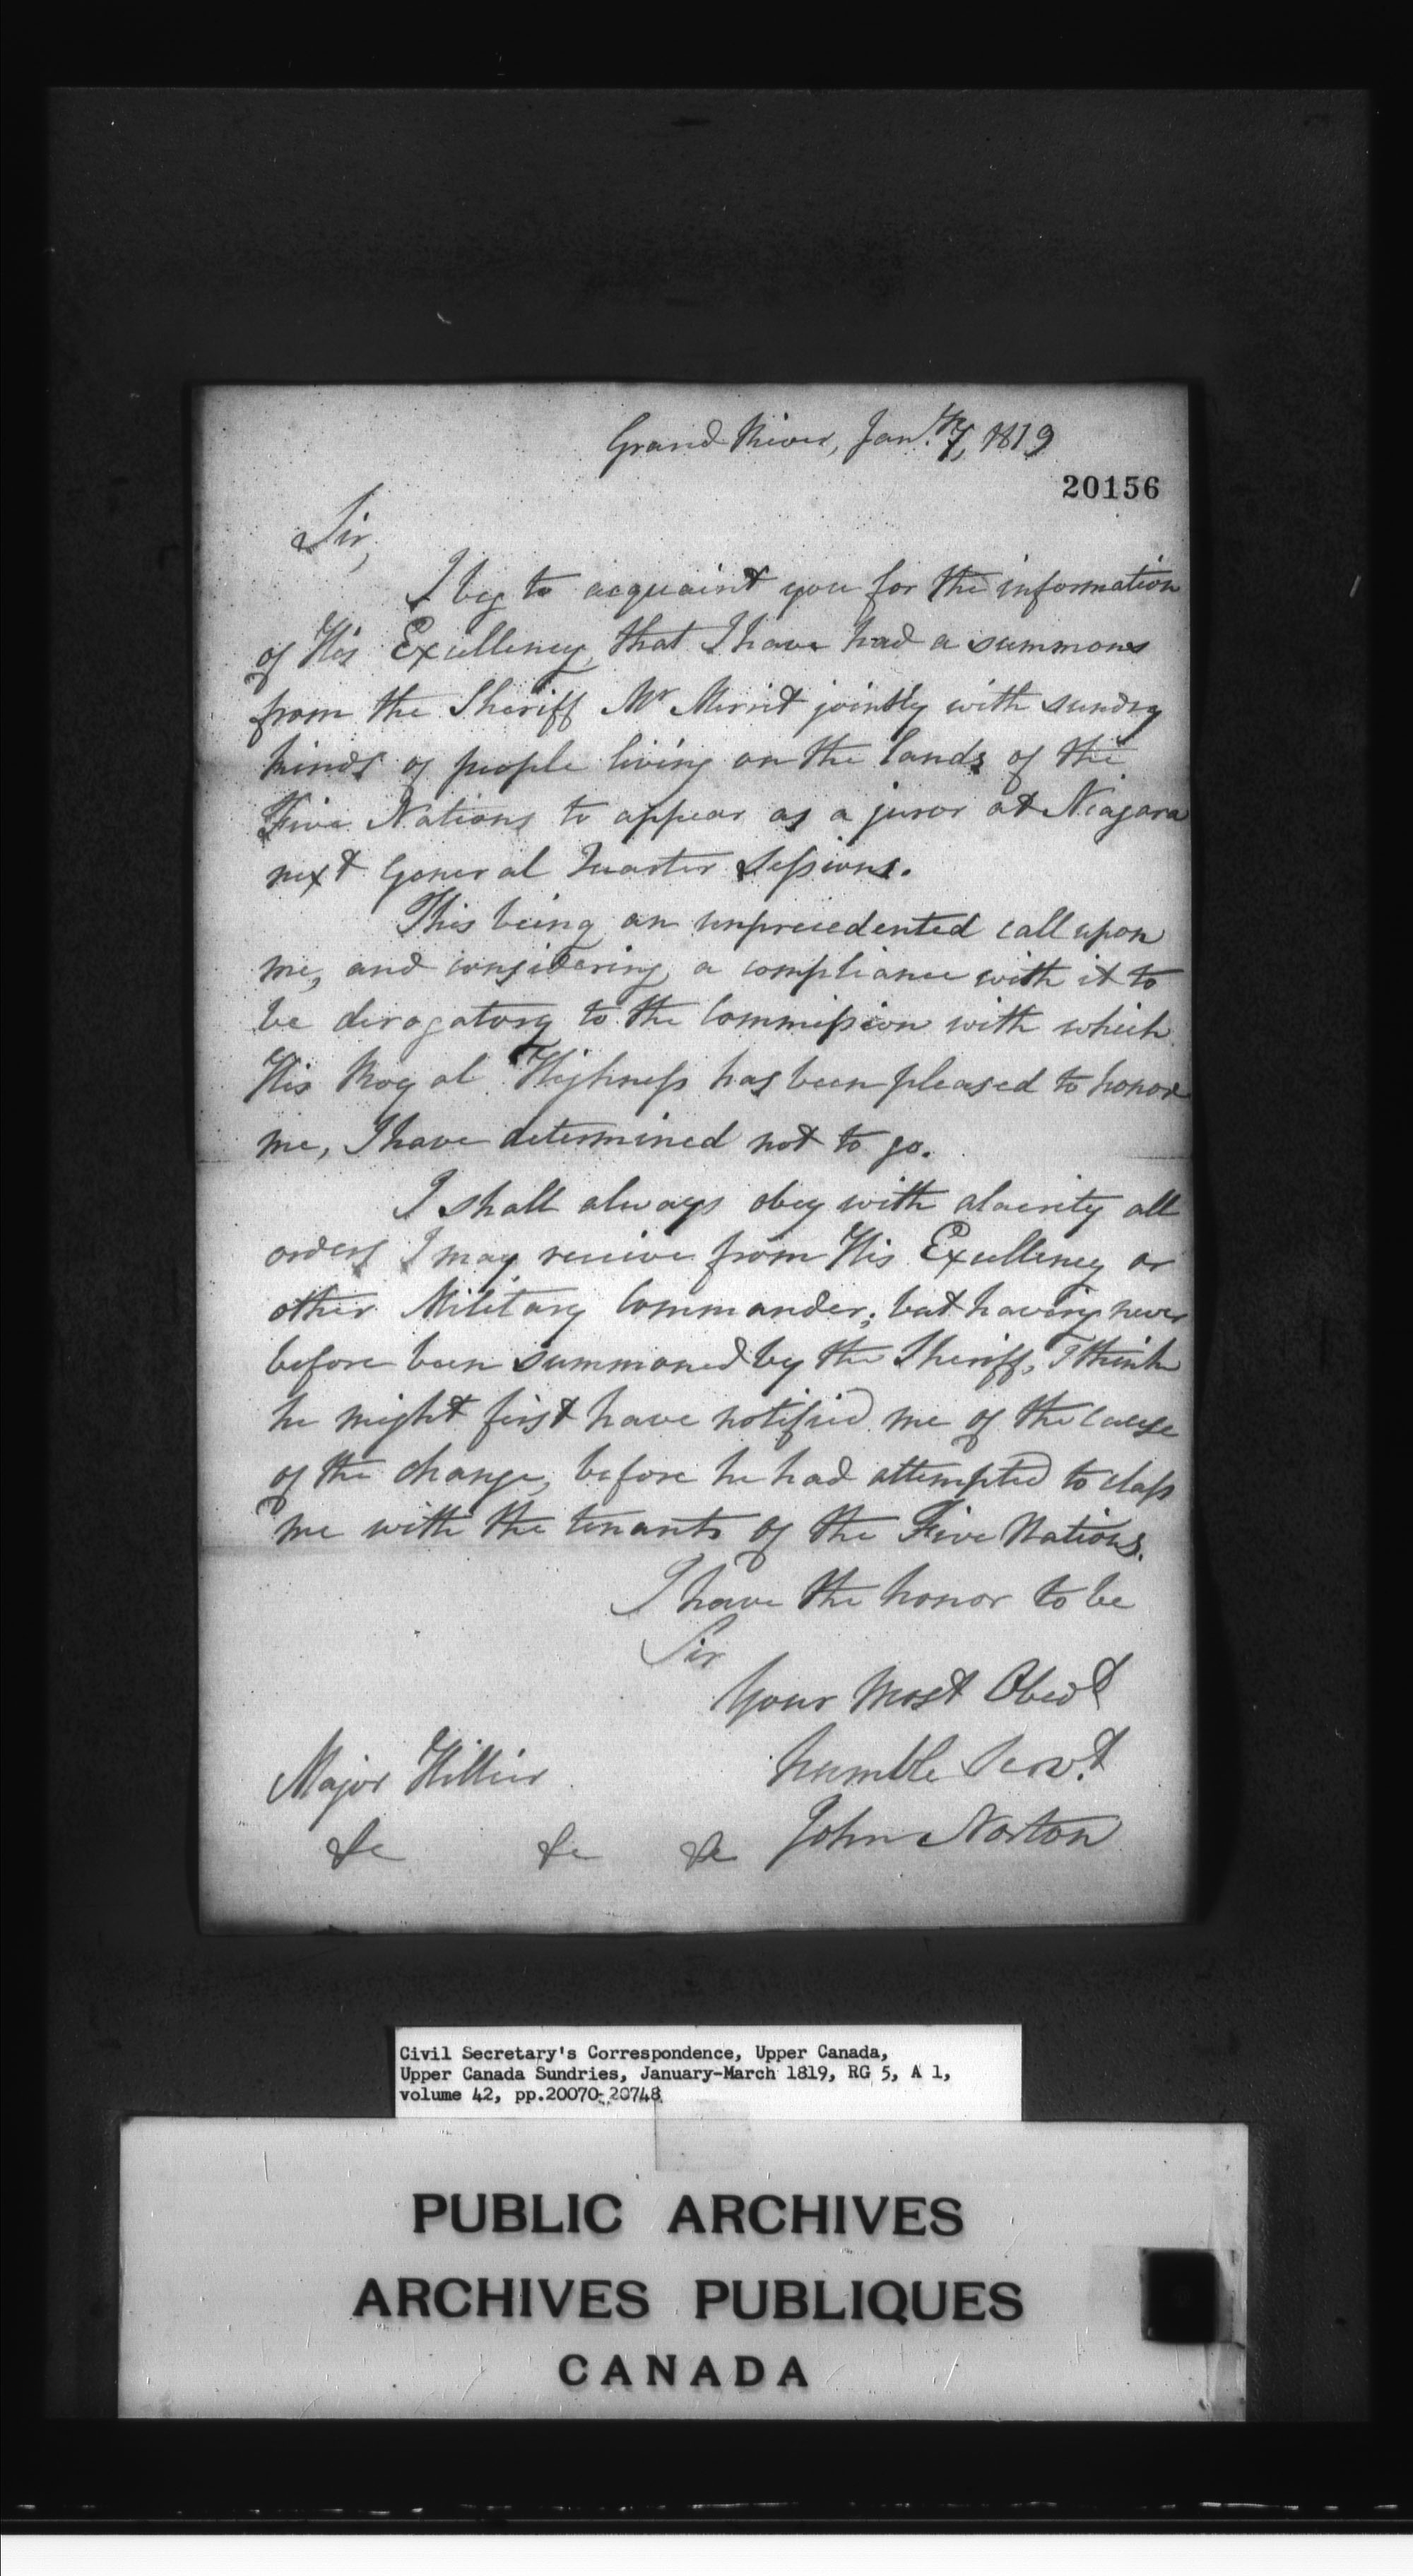 Grand River, Jany. 7, 1819
20156
Sir,
I beg to acquaint you for the information
of His Excellency, that I have had a summons
from the Sheriff Mr Merrit jointly with sundry
kinds of people living on the lands of the
Five Nations to appear as a juror at Niagara
next General Quarter Sessions.
This being an unprecedented call upon
me, and considering a compliance with it to
be derogatory to the Commission with which
His Royal Highness has been pleased to honor
me, I have determined not to go.
I shall always obey with alacrity all
orders I may receive from His Excellency or
other Military Commander; but having never
before been summoned by the Sheriff, I think
he might first have notified me of the cause
of the change, before he had attempted to class
me with the tenants of the Five Nations.
I have the honor to be
Sir
Your most Obedt
humble Servt.
Major Hillier
John Norton
&c &c &c
Civil Secretary's Correspondence, Upper Canada,
Upper Canada Sundries, January-March 1819, RG 5, A 1,
volume 42, pp.20070-20748
PUBLIC ARCHIVES
ARCHIVES PUBLIQUES
CANADA